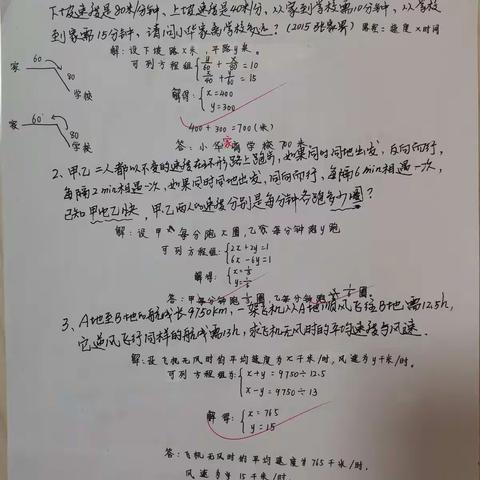 下坡速度是80米/分钟,上坡速度是40米/分,从家到学校需10分钟,从学校
到家需15分钟,请问小华家离学校多远?(2015张家界)路程=速度×时间
解:设下坡路x米,平路y米。
可列方程组{y/60+x/80=10
x/40+y/60=15
解得:{x=400
y=300
400+300=700(米)
答:小华家离学校700米
家 60 80 学校
家 60 80 学校
2、甲、乙二人都以不变的速度在环形路上跑步,如果同时同地出发,反向而行,
每隔2min相遇一次,如果同时同地出发,同向而行,每隔6min相遇一次,
已知甲比乙快,甲、乙两人的速度分别是每分钟各跑多少圈?
解:设甲每分跑x圈,乙每分钟跑y圈
可列方程组:{2x+2y=1
6x-6y=1
解得:{x=1/3
y=1/6
答:甲每分钟跑1/3圈,乙每分钟跑1/6圈。
3、A地至B地的航线长9750km,一架飞机从A地顺风飞往B地需12.5h,
它逆风飞行同样的航线需13h,求飞机无风时的平均速度与风速.
解:设飞机无风时的平均速度为x千米/时,风速为y千米/时。
可列方程组为{x+y=9750÷12.5
x-y=9750÷13
解得:{x=765
y=15
答:飞机无风时的平均速度为765千米/时,
风速为15千米/时.